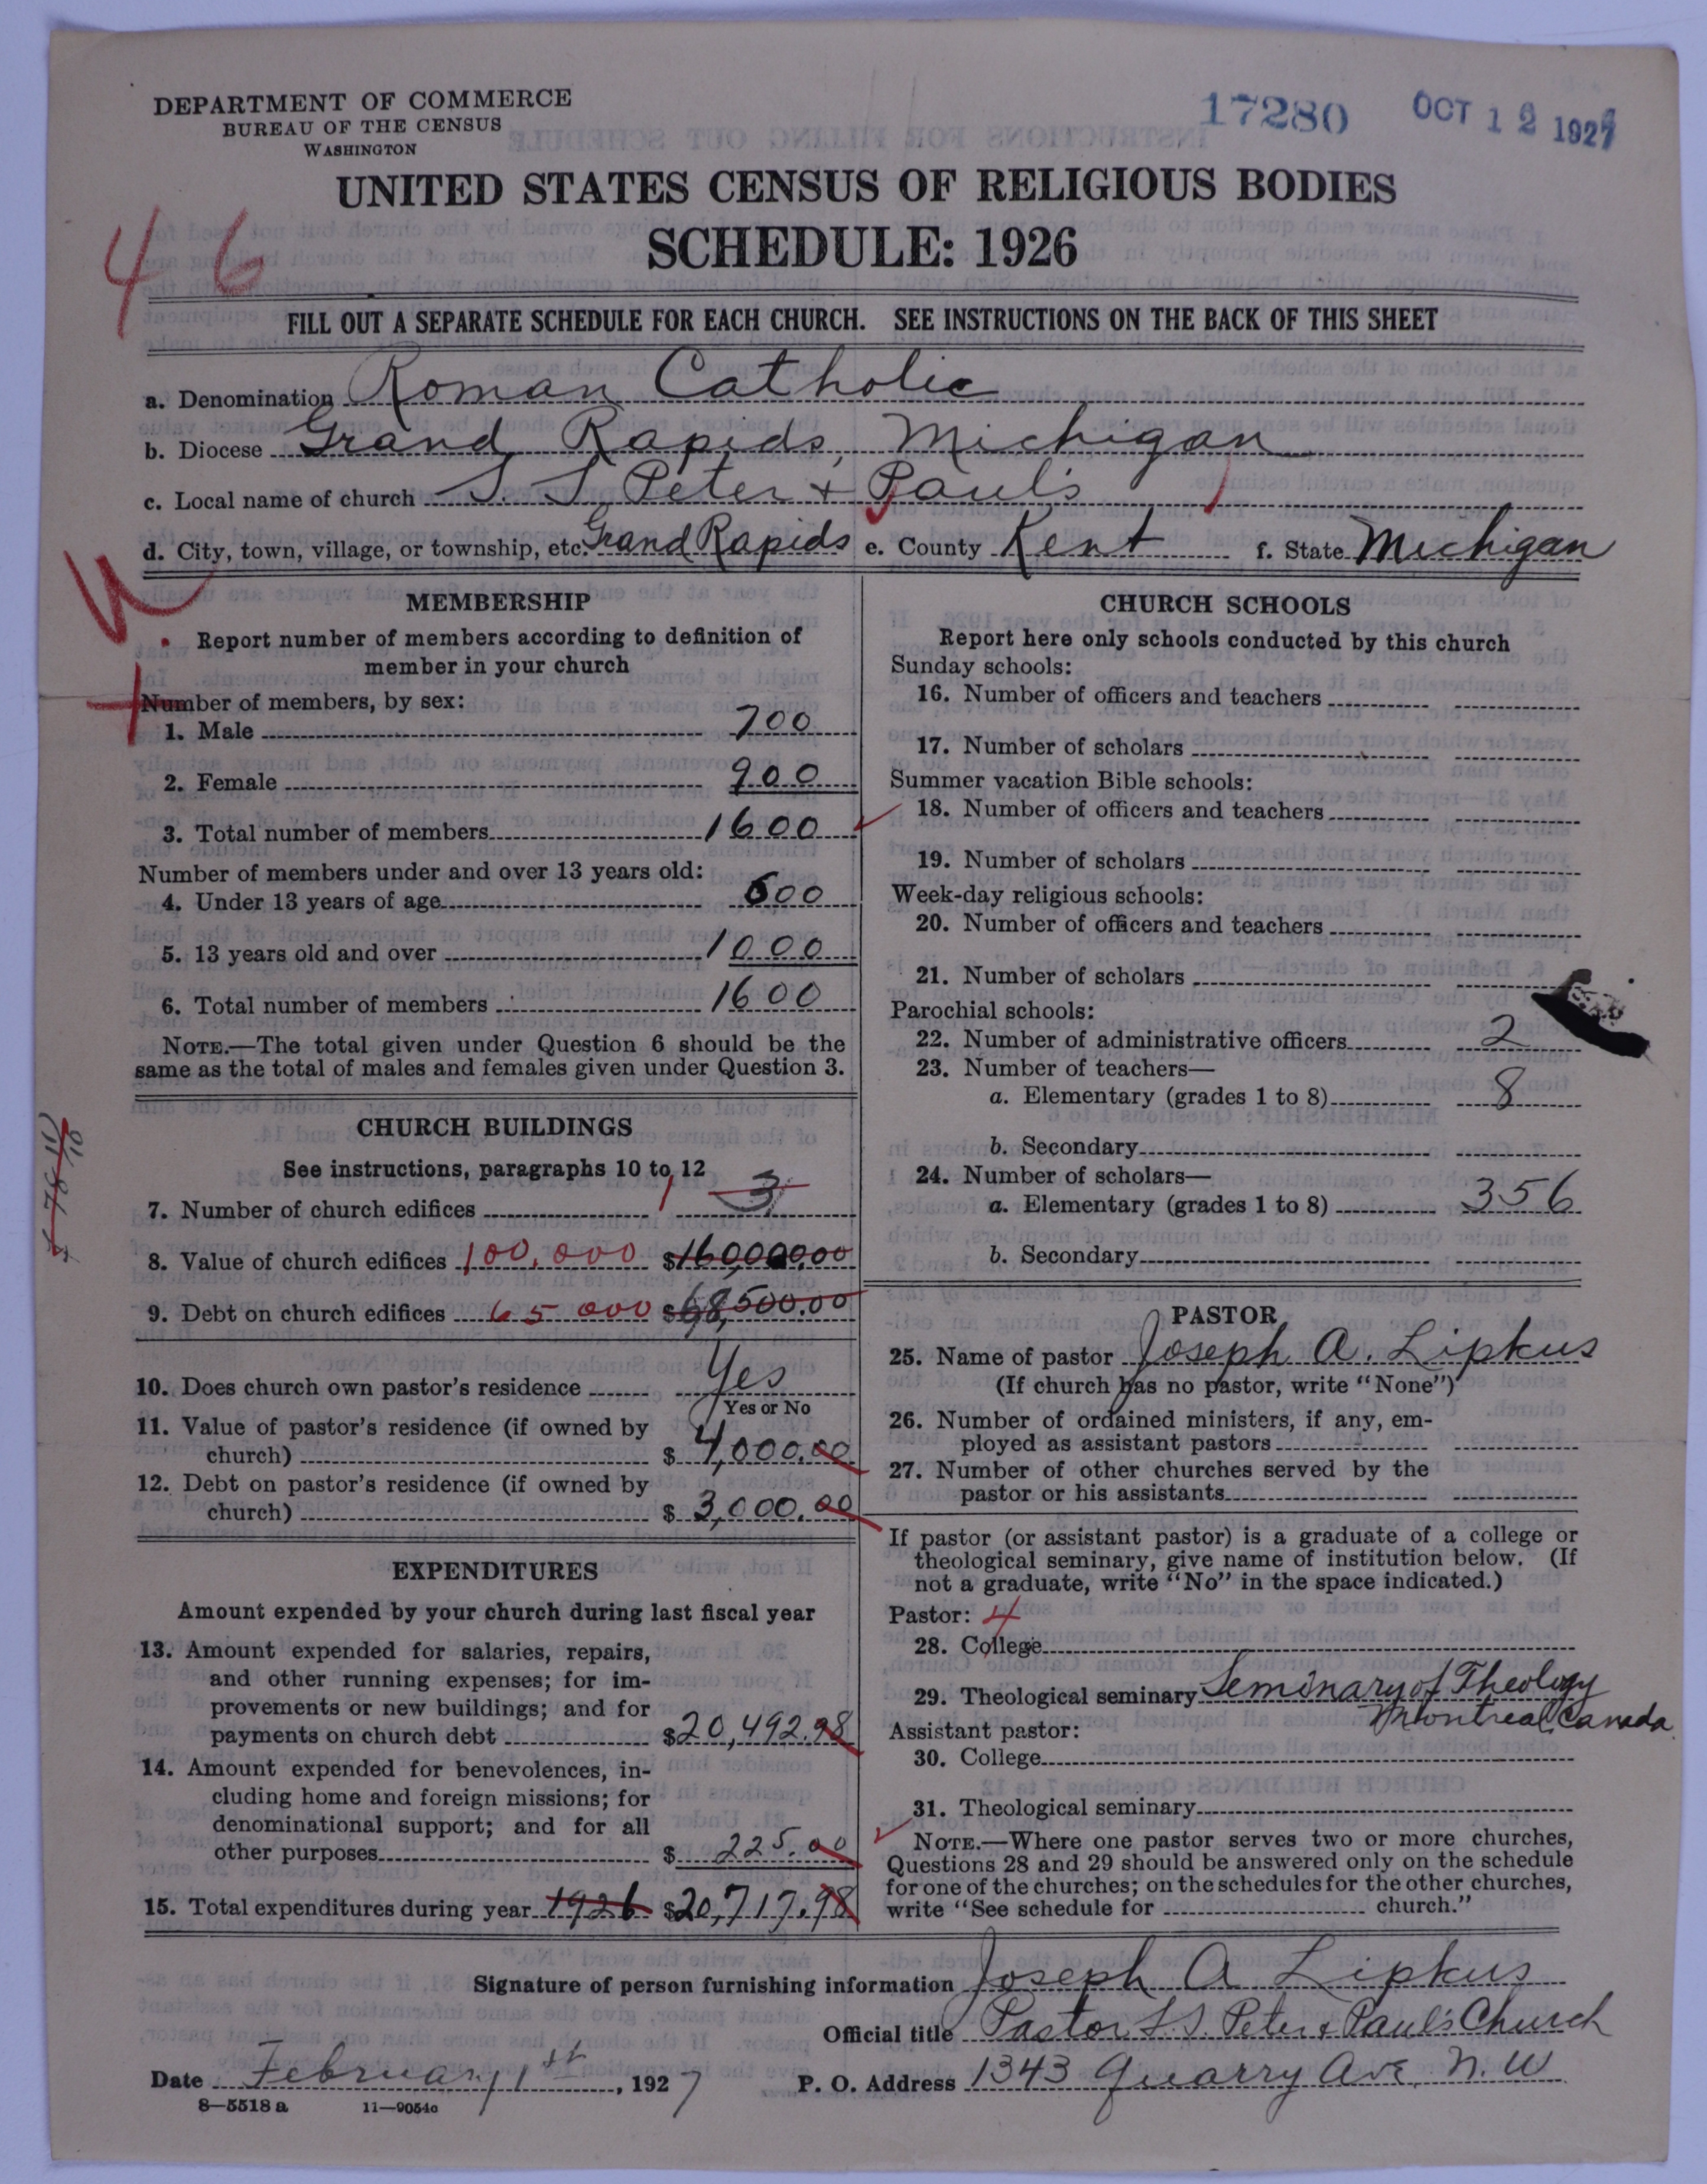 DEPARTMENT OF COMMERCE
BUREAU OF THE CENSUS
WASHINGTON
17280 OCT 12 192
UNITED STATES CENSUS OF RELIGIOUS BODIES
SCHEDULE: 1926
46
FILL OUT A SEPARATE SCHEDULE FOR EACH CHURCH. SEE INSTRUCTIONS ON THE BACK OF THIS SHEET
a. Denomination Roman Catholic
b. Diocese Grand Rapids, Michigan
c. Local name of church S S Peter + Paul's
d. City, town, village, or township, etc. Grand Rapids e. County Kent f. State Michigan
MEMBERSHIP
Report number of members according to definition of
member in your church
Number of members, by sex:
1. Male 700
2. Female 900
3. Total number of members 1600
Number of members under and over 13 years old:
4. Under 13 years of age 600
5. 13 years old and over 1000
6. Total number of members 1600
NOTE.—The total given under Question 6 should be the
same as the total of males and females given under Question 3.
CHURCH BUILDINGS
See instructions, paragraphs 10 to 12
7. Number of church edifices 1 3
8. Value of church edifices 100,000 $160,000.00
9. Debt on church edifices 65 000 $68,500.00
10. Does church own pastor's residence Yes
Yes or No
11. Value of pastor's residence (if owned by
church) $ 4,000.00
12. Debt on pastor's residence (if owned by
church) $ 3,000.00
EXPENDITURES
Amount expended by your church during last fiscal year
13. Amount expended for salaries, repairs,
and other running expenses; for im-
provements or new buildings; and for
payments on church debt $20,492.98
14. Amount expended for benevolences, in-
cluding home and foreign missions; for
denominational support; and for all
other purposes $ 225.00
15. Total expenditures during year 1926 $20,717.98
CHURCH SCHOOLS
Report here only schools conducted by this church
Sunday schools:
16. Number of officers and teachers
17. Number of scholars
Summer vacation Bible schools:
18. Number of officers and teachers
19. Number of scholars
Week-day religious schools:
20. Number of officers and teachers
21. Number of scholars
Parochial schools:
22. Number of administrative officers 2
23. Number of teachers—
a. Elementary (grades 1 to 8) 8
b. Secondary
24. Number of scholars—
a. Elementary (grades 1 to 8) 356
b. Secondary
PASTOR
25. Name of pastor Joseph A. Lipkus
(If church has no pastor, write "None")
26. Number of ordained ministers, if any, em-
ployed as assistant pastors
27. Number of other churches served by the
pastor or his assistants
If pastor (or assistant pastor) is a graduate of a college or
theological seminary, give name of institution below. (If
not a graduate, write "No" in the space indicated.)
Pastor: 4
28. College
29. Theological seminary Seminary of Theology
Montreal Canada
Assistant pastor:
30. College
31. Theological seminary
NOTE.—Where one pastor serves two or more churches,
Questions 28 and 29 should be answered only on the schedule
for one of the churches; on the schedules for the other churches,
write "See schedule for church."
Signature of person furnishing information Joseph A Lipkus
Official title Pastor S S Peter + Paul's Church
Date February 1st, 1927 P. O. Address 1343 Quarry Ave. N. W
8—5518 a 11—9054c